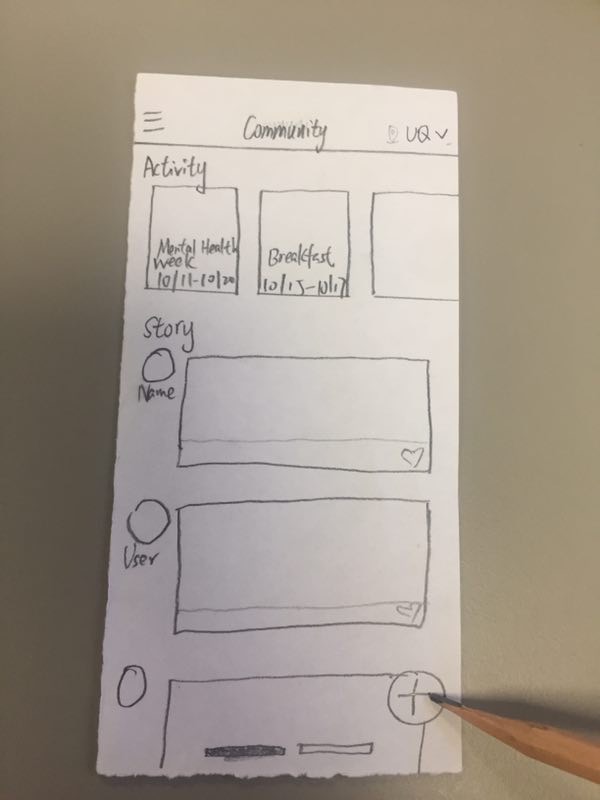 Community
UQ
Activity
Mental Health
Week
10/11-10/20
Breakfast
10/15-10/17
Story
Name
User